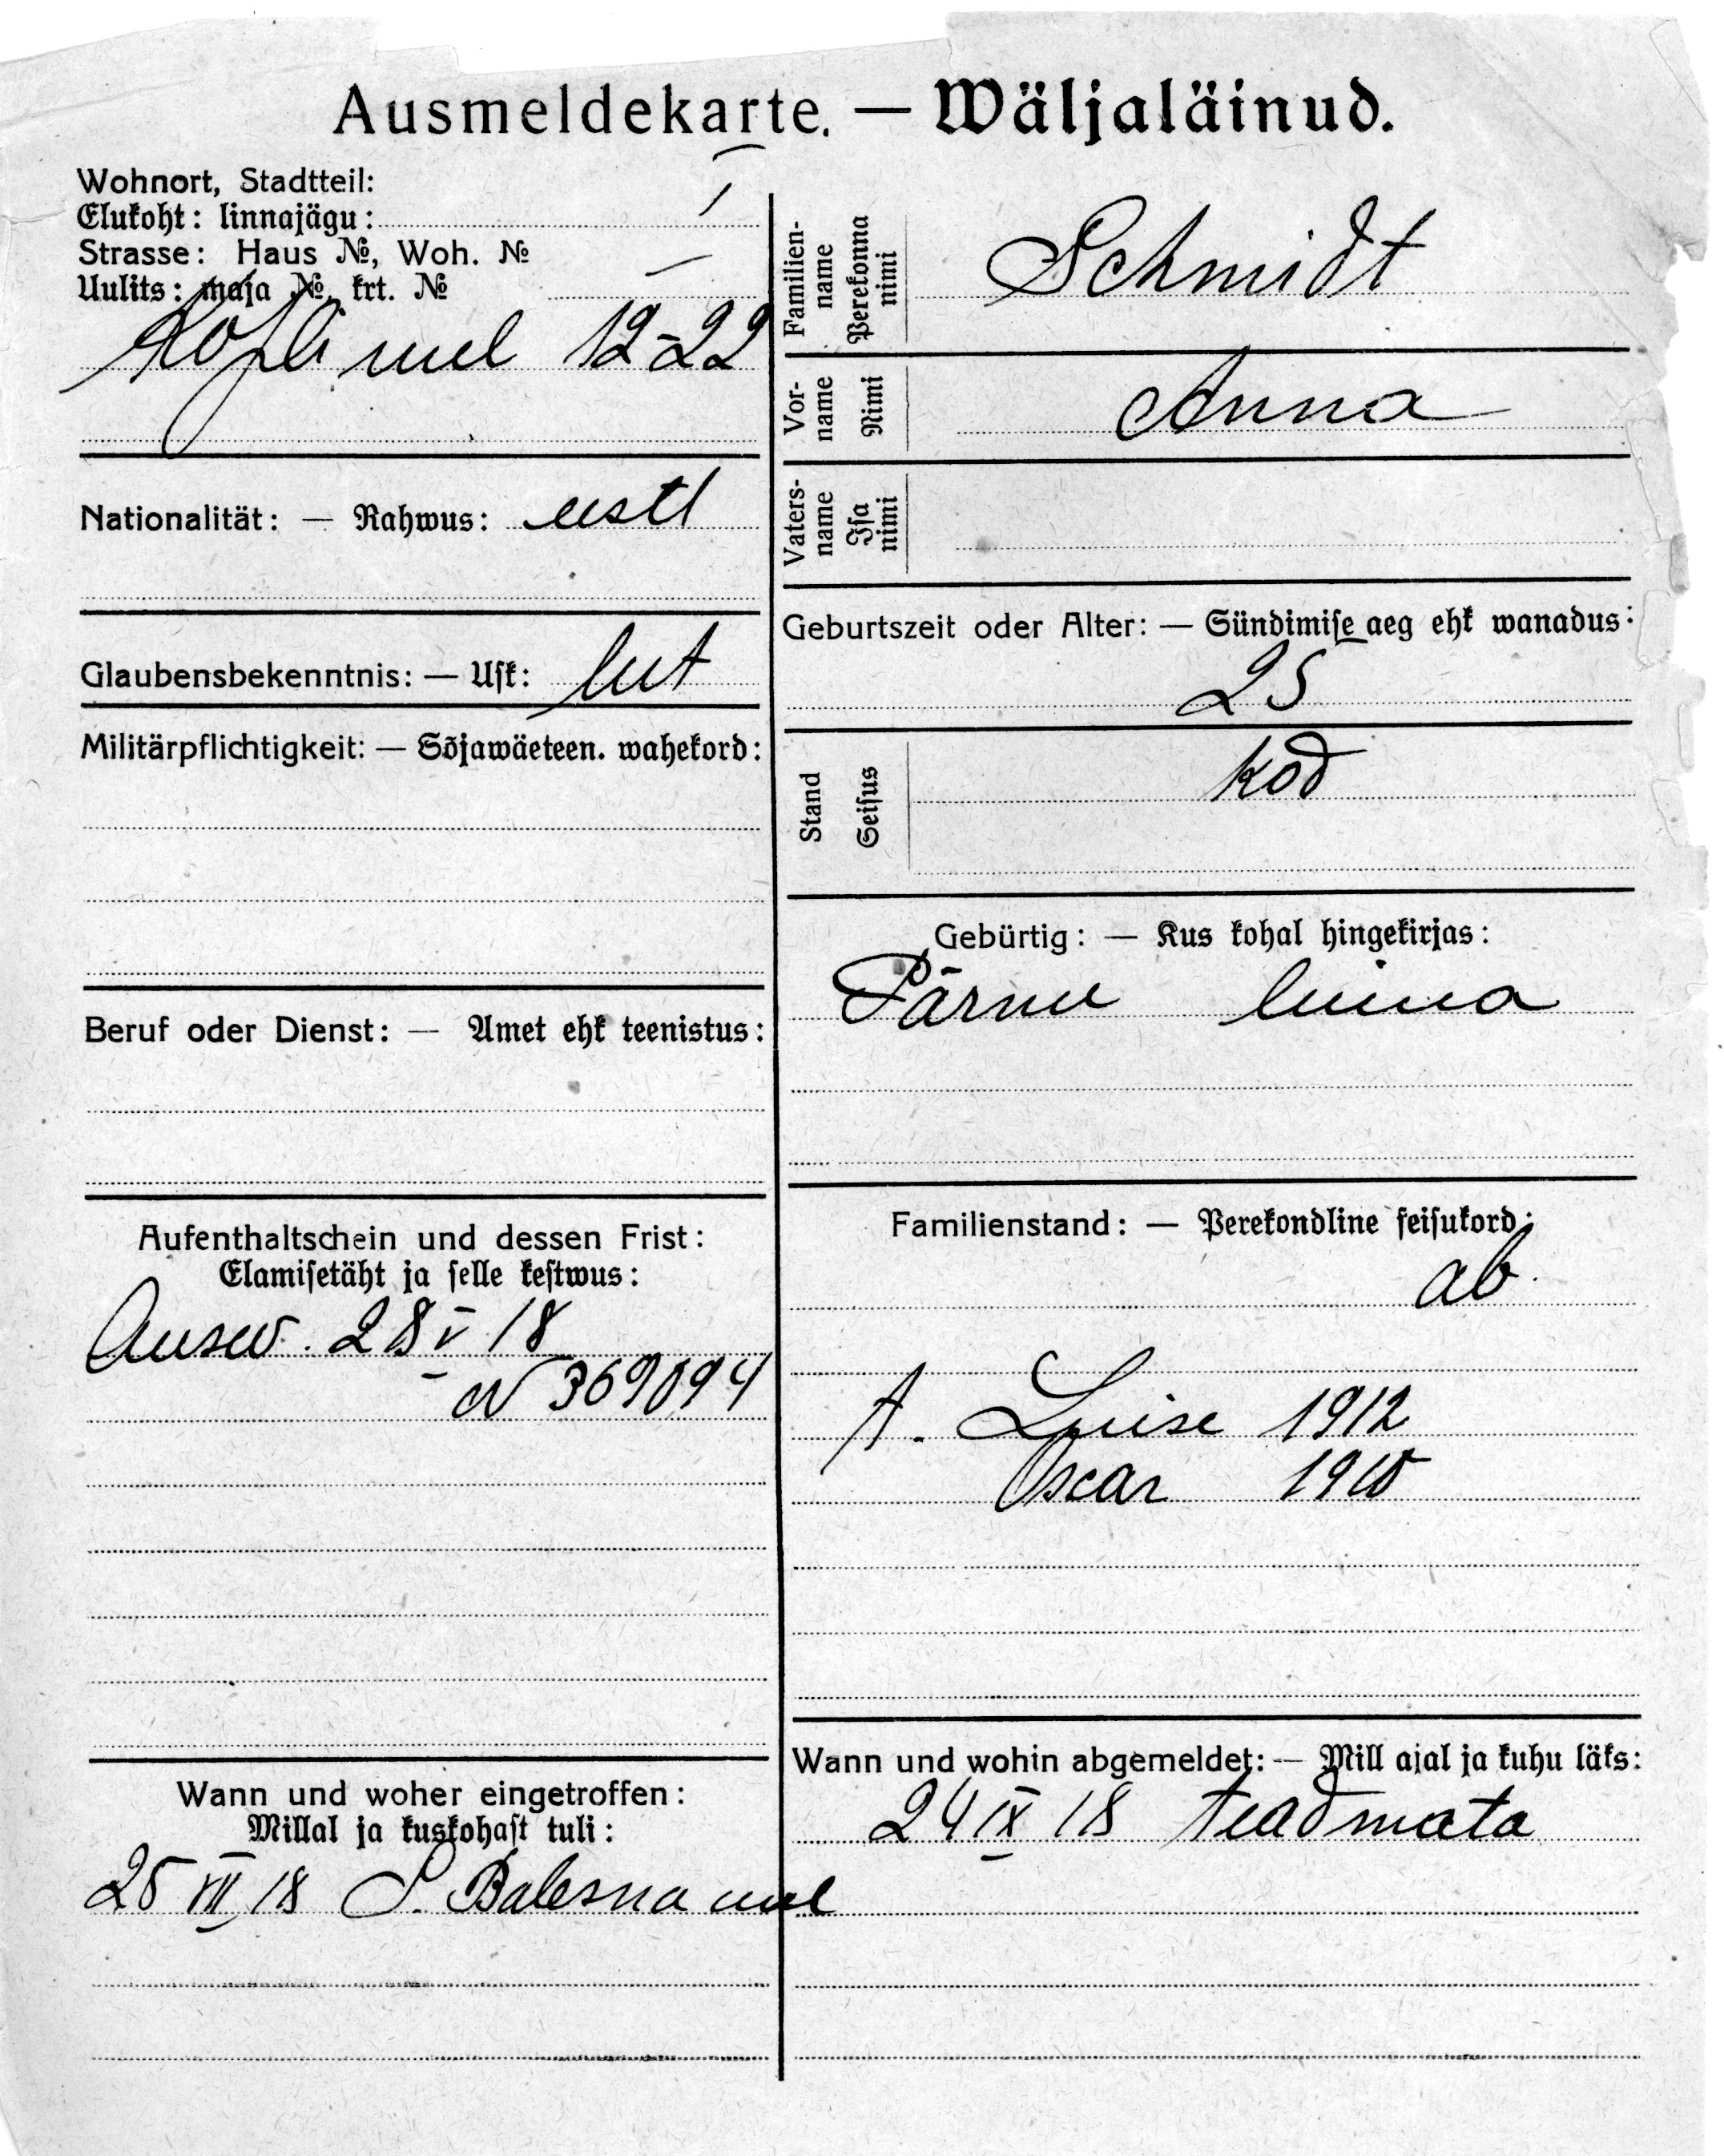 Ausmeldekarte. — Wäljaläinud.
Wohnort, Stadtteil:
Elukoht: linnajägu:
Strasse: Haus №, Woh. №
Uulits: maja №, krt. №
Kopli uul 12-22
Nationalität: — Rahwus: eestl
Glaubensbekenntnis: — Usk: lut
Militärpflichtigkeit: — Sõjawäeteen. wahekord:
Beruf oder Dienst: — Amet ehk teenistus:
Aufenthaltschein und dessen Frist:
Elamisetäht ja selle kestwus:
Ausw. 28 V 18
N 369094
Wann und woher eingetroffen:
Millal ja kuskohast tuli:
25 VII 18 S. Balesna uul
Familien-name Perekonna nimi Schmidt
Vor-name Nimi Anna
Vaters-name Isa nimi
Geburtszeit oder Alter: — Sündimise aeg ehk wanadus:
25
Stand Seisus kod
Gebürtig: — Kus kohal hingekirjas:
Pärnu linna
Familienstand: — Perekondline seisukord:
ab.
A. Luise 1912
Oscar 1910
Wann und wohin abgemeldet: — Mill ajal ja kuhu läks:
24 IX 18 teadmata